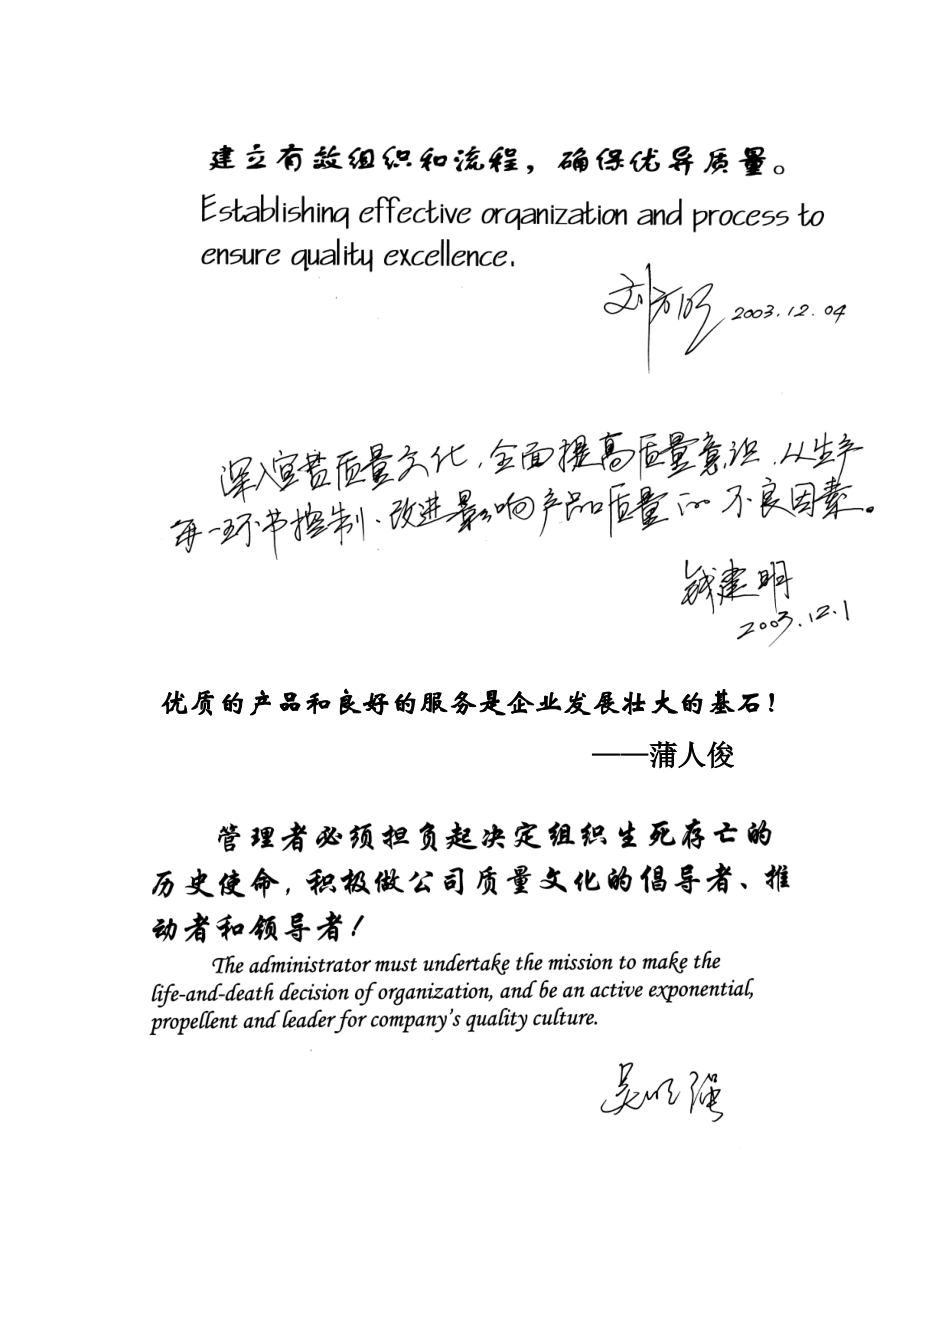 建立有效组织和流程，确保优异质量。
Establishing effective organization and process to
ensure quality excellence.
2003.12.04
深入宣贯质量文化，全面提高质量意识，从生产
每一环节控制、改进影响产品质量的不良因素。
钱建明
2003.12.1
优质的产品和良好的服务是企业发展壮大的基石！
——蒲人俊
管理者必须担负起决定组织生死存亡的
历史使命，积极做公司质量文化的倡导者、推
动者和领导者！
The administrator must undertake the mission to make the
life-and-death decision of organization, and be an active exponential,
propellent and leader for company's quality culture.